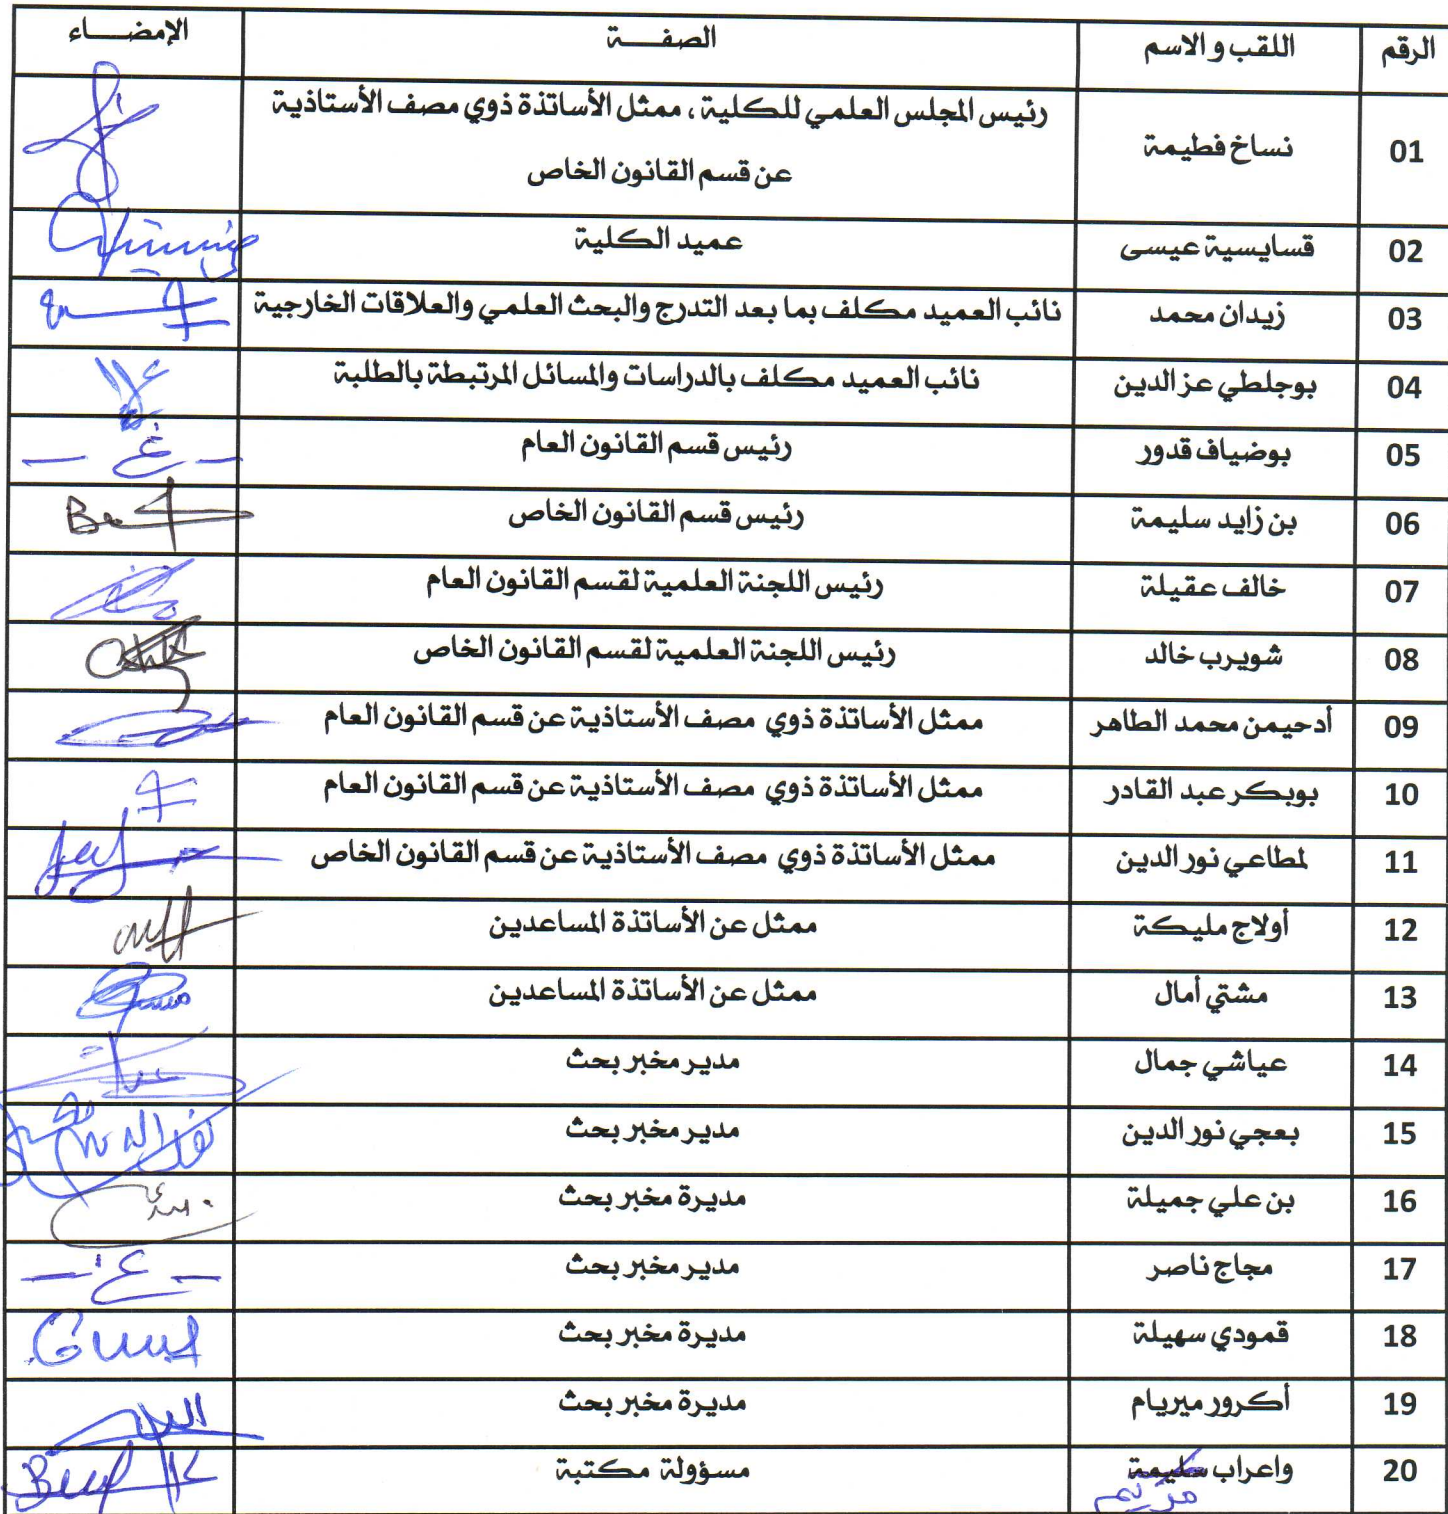 الرقم اللقب والاسم الصفـــة الإمضـــاء
01 نساخ فطيمة رئيس المجلس العلمي للكلية ، ممثل الأساتذة ذوي مصف الأستاذية
عن قسم القانون الخاص
02 قسايسية عيسى عميد الكلية
03 زيدان محمد نائب العميد مكلف بما بعد التدرج والبحث العلمي والعلاقات الخارجية
04 بوجلطي عز الدين نائب العميد مكلف بالدراسات والمسائل المرتبطة بالطلبة
05 بوضياف قدور رئيس قسم القانون العام - غ -
06 بن زايد سليمة رئيس قسم القانون الخاص
07 خالف عقيلة رئيس اللجنة العلمية لقسم القانون العام
08 شويرب خالد رئيس اللجنة العلمية لقسم القانون الخاص
09 أدحيمن محمد الطاهر ممثل الأساتذة ذوي مصف الأستاذية عن قسم القانون العام
10 بوبكر عبد القادر ممثل الأساتذة ذوي مصف الأستاذية عن قسم القانون العام
11 لمطاعي نور الدين ممثل الأساتذة ذوي مصف الأستاذية عن قسم القانون الخاص
12 أولاج مليكة ممثل عن الأساتذة المساعدين
13 مشتي أمال ممثل عن الأساتذة المساعدين
14 عياشي جمال مدير مخبر بحث
15 بعجي نور الدين مدير مخبر بحث
16 بن علي جميلة مديرة مخبر بحث
17 مجاج ناصر مدير مخبر بحث - غ -
18 قمودي سهيلة مديرة مخبر بحث
19 أكرور ميريام مديرة مخبر بحث
20 واعراب سليمة مسؤولة مكتبة
مريم